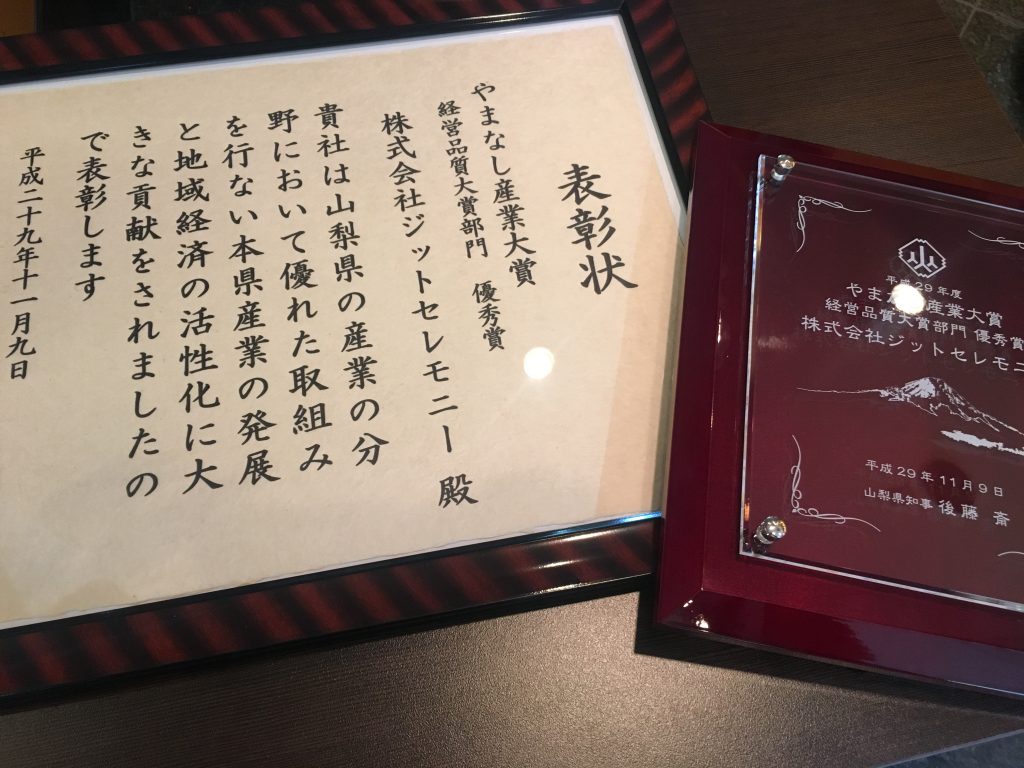 表彰状
やまなし産業大賞
経営品質大賞部門 優秀賞
株式会社ジットセレモニー 殿
貴社は山梨県の産業の分
野において優れた取組み
を行ない本県産業の発展
と地域経済の活性化に大
きな貢献をされましたの
で表彰します
平成二十九年十一月九日
平成29年度
やまなし産業大賞
経営品質大賞部門 優秀賞
株式会社ジットセレモニ
平成29年11月9日
山梨県知事 後藤 斎